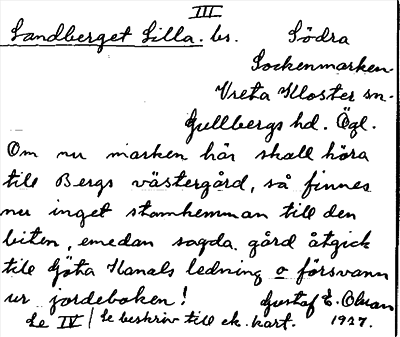 III
Sandberget Lilla. br. Södra
Sockenmarken
Vreta Kloster sn.
Gullbergs hd. Ögl.
Om nu marken här skall höra
till Bergs västergård, så finnes
nu inget stamhemman till den
biten, emedan sagda gård åtgick
till Göta Kanals ledning o försvann
ur jordeboken! Gustaf E. Olsson
Se IV / Se beskriv till ek. kart. 1927.